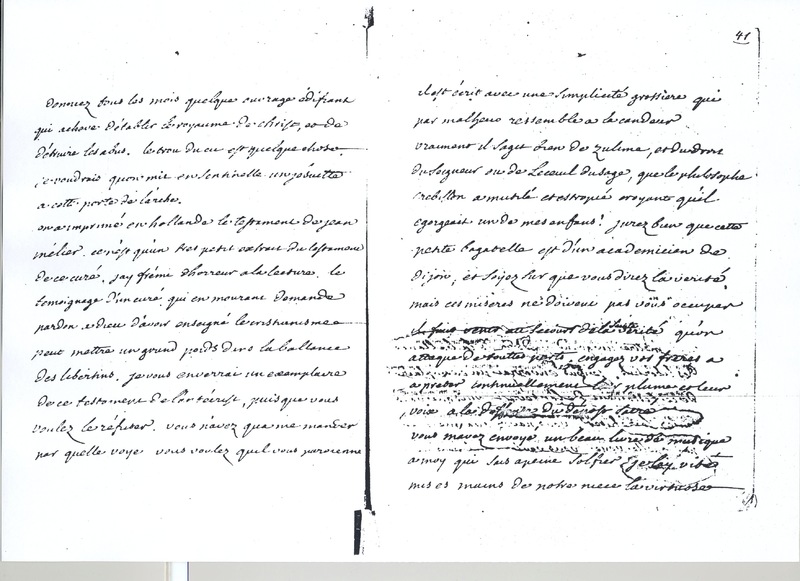 donnez tous les mois quelque ouvrage édifiant
qui acheve d'établir le royaume de christ, et de
détruire les abus. le trou du cu est quelque chose.
je voudrois qu'on mit en sentinelle un jésuitte
a cette porte de l'arche.
on a imprimé en hollande le testament de jean
mélier. ce n'est qu'un tres petit extrait du testament
de ce curé. jay frémi d'horreur a la lecture. le
temoignage d'un curé qui en mourant demande
pardon a dieu d'avoir enseigné le cristianisme
peut mettre un grand poids dans la ballance
des libertins. je vous enverrai un exemplaire
de ce testament de l'antécrist, puisque vous
voulez le réfuter. vous n'avez qu'a me mander
par quelle voye vous voulez quil vous parvienne
41
il est écrit avec une simplicité grossiere qui
par malheur ressemble a la candeur
vraiment il sagit bien de zulime, et du droit
du seigneur ou de l'ecueil du sage, que le philosophe
crebillon a mutilé et estropié croyant qu'il
egorgeait un de mes enfans! jurez bien que cette
petite bagatelle est d'un academicien de
dijon, et soyez sur que vous direz la verité.
mais ces miseres ne doivent pas vous occuper
il faut venir au secours de la sainte verité qu'on
attaque de toutes parts. engagez vos freres a
a preter continuellement leur plume et leur
voix a la du dépost sacré
vous mavez envoyé un beau livre de musique
a moy qui sais a peine solfier je lay vite
mis es mains de notre niece la virtuose